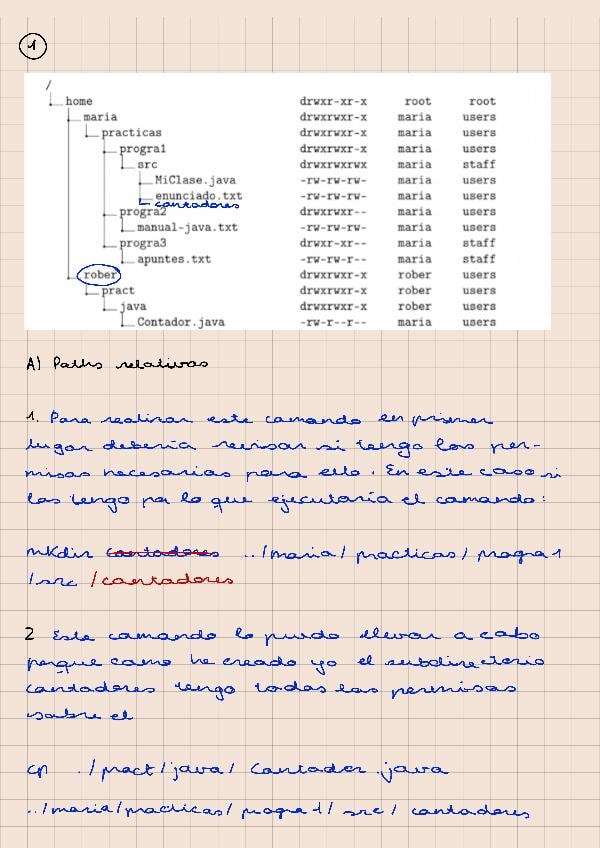 1
/
home drwxr-xr-x root root
maria drwxrwxr-x maria users
practicas drwxrwxr-x maria users
progra1 drwxrwxr-x maria users
src drwxrwxrwx maria staff
MiClase.java -rw-rw-rw- maria users
enunciado.txt -rw-rw-rw- maria users
contadores
progra2 drwxrwxr-- maria users
manual-java.txt -rw-rw-rw- maria users
progra3 drwxr-xr-- maria staff
apuntes.txt -rw-rw-r-- maria staff
rober drwxrwxr-x rober users
pract drwxrwxr-x rober users
java drwxrwxr-x rober users
Contador.java -rw-r--r-- maria users
A) Paths relativos
1. Para realizar este comando en primer
lugar debería revisar si tengo los per-
misos necesarios para ello. En este caso si
los tengo por lo que ejecutaría el comando:
mkdir contadores ../maria/ practicas/ progra1
/src /contadores
2 Este comando lo puedo llevar a cabo
porque como he creado yo el subdirectorio
contadores tengo todos los permisos
sobre el
cp ./pract/java/ Contador.java
../maria/practicas/ progra1/ src/ contadores